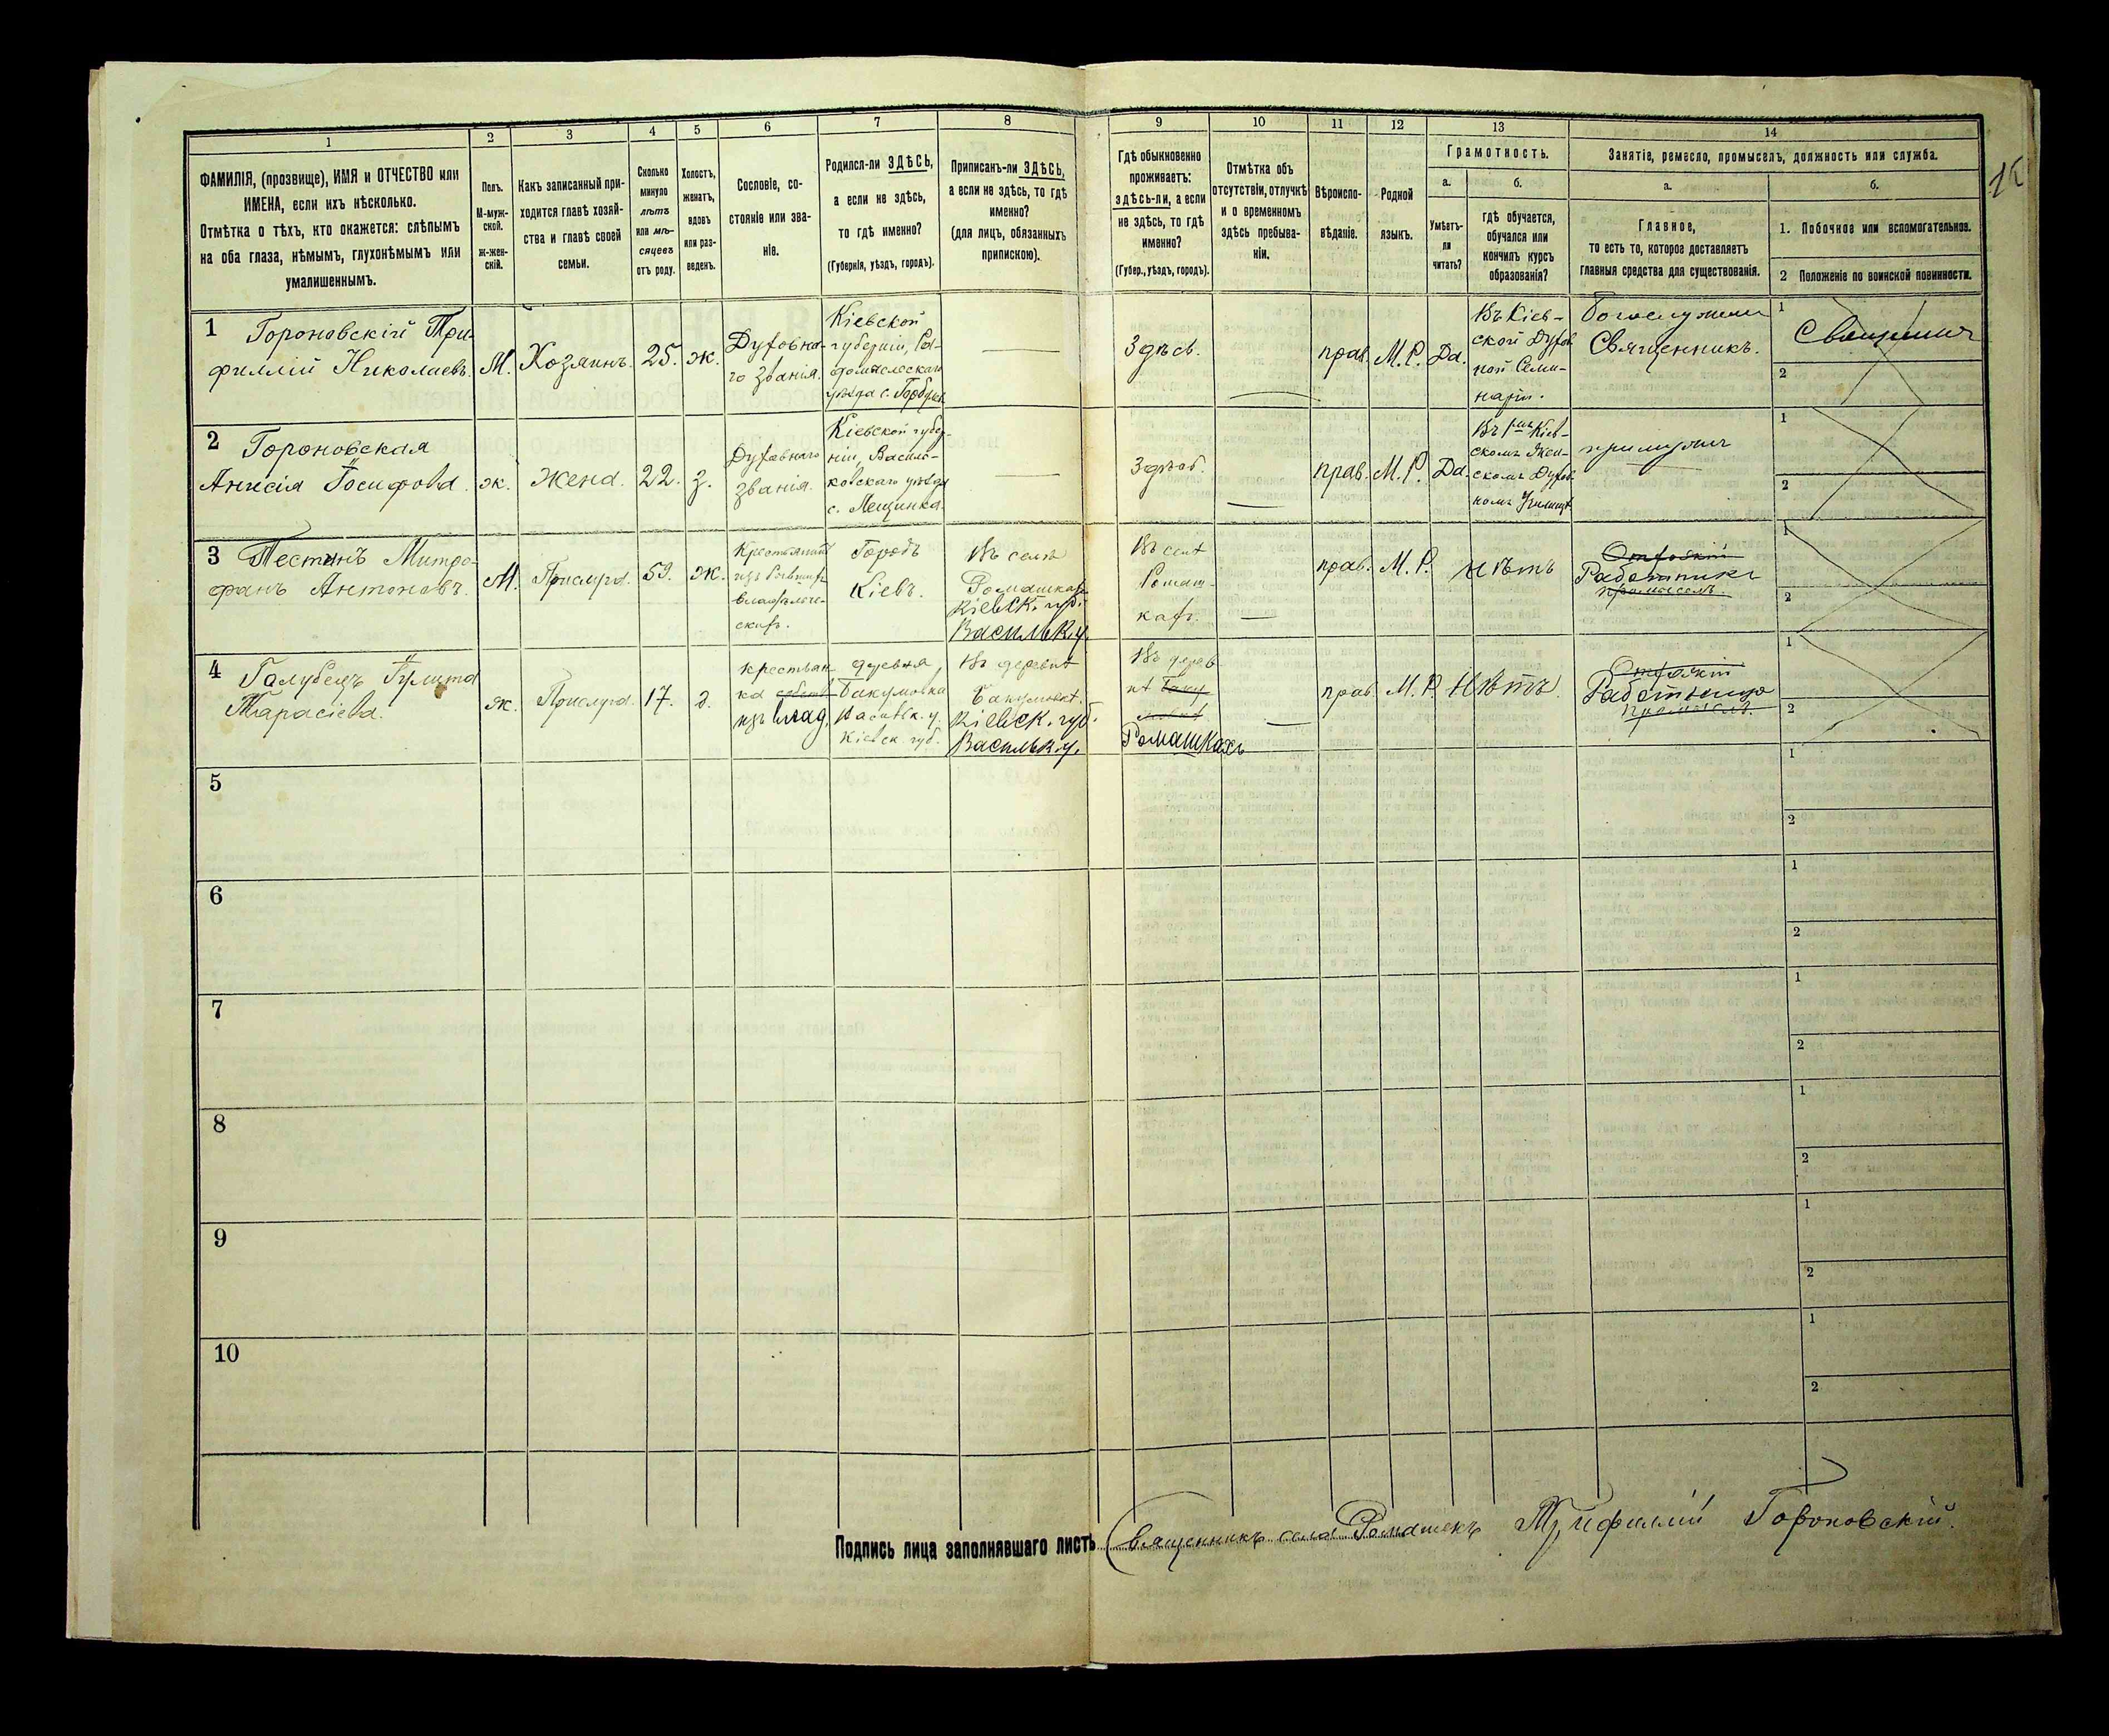 1 2 3 4 5 6 7 8 9 10 11 12 13 14
ФАМИЛІЯ, (прозвище), ИМЯ и ОТЧЕСТВО или
ИМЕНА, если ихъ нѣсколько.
Отмѣтка о тѣхъ, кто окажется: слѣпымъ
на оба глаза, нѣмымъ, глухонѣмымъ или
умалишеннымъ.
Полъ.
М-муж-
ской.
ж-жен-
скій.
Какъ записанный при-
ходится главѣ хозяй-
ства и главѣ своей
семьи.
Сколько
минуло
лѣтъ
или мѣ-
сяцевъ
отъ роду.
Холостъ,
женатъ,
вдовъ
или раз-
веденъ.
Сословіе, со-
стояніе или зва-
ніе.
Родился-ли ЗДѢСЬ,
а если не здѣсь,
то гдѣ именно?
(Губернія, уѣздъ, городъ).
Приписанъ-ли ЗДѢСЬ,
а если не здѣсь, то гдѣ
именно?
(для лицъ, обязанныхъ
припискою).
Гдѣ обыкновенно
проживаетъ:
здѣсь-ли, а если
не здѣсь, то гдѣ
именно?
(Губер., уѣздъ, городъ).
Отмѣтка объ
отсутствіи, отлучкѣ
и о временномъ
здѣсь пребыва-
ніи.
Вѣроиспо-
вѣданіе.
Родной
языкъ.
Грамотность.
а.
Умѣетъ-
ли
читать?
б.
гдѣ обучается,
обучался или
кончилъ курсъ
образованія?
Занятіе, ремесло, промыселъ, должность или служба.
а.
Главное,
то есть то, которое доставляетъ
главныя средства для существованія.
б.
1. Побочное или вспомогательное.
2 Положеніе по воинской повинности.
1 Гороновскій Три-
филлій Николаевъ.
М.
Хозяинъ.
25.
ж.
Духовна-
го званія.
Кіевской
губерніи, Ра-
домысльскаго
уѣзда с.
Здѣсь.
прав.
М. Р.
Да.
Въ Кіев-
ской Духов
ной Семи-
наріи.
Священникъ.
1
2
2 Гороновская
Анисія Іосифова.
ж.
Жена.
22.
з.
Духовнаго
званія.
Кіевской губер-
ніи, Василь-
ковскаго уѣзда
с.
прав.
М. Р.
Да.
Кіев-
скомъ Жен-
скомъ Духов
номъ Училищѣ
1
2
3 Пестинъ Митро-
фанъ Антоновъ.
М.
Прислуга.
59.
ж.
Городъ
Кіевъ.
Въ селѣ
Ромашкахъ
Кіевск. губ.
Васильк. у.
Въ селѣ
Ромаш-
кахъ.
прав.
М. Р.
нѣтъ
Работникъ
1
2
4 Галубецъ Гулита
Тарасіева.
ж.
Прислуга.
17.
д.
крестьян-
ка
изъ влад.
деревня,
Бакумовка
Васильк. у.
Кіевск. губ.
Въ деревнѣ
Бакумовкѣ.
Кіевск. губ.
Васильк. у.
Въ дерев
нѣ
Ромашкахъ
прав.
М. Р.
Нѣтъ.
Работница
1
2
5
1
2
6
1
2
7
1
2
8
1
2
9
1
2
10
1
2
Подпись лица заполнявшаго листъ Священникъ села Ромашекъ Трифиллій Гороновскій.